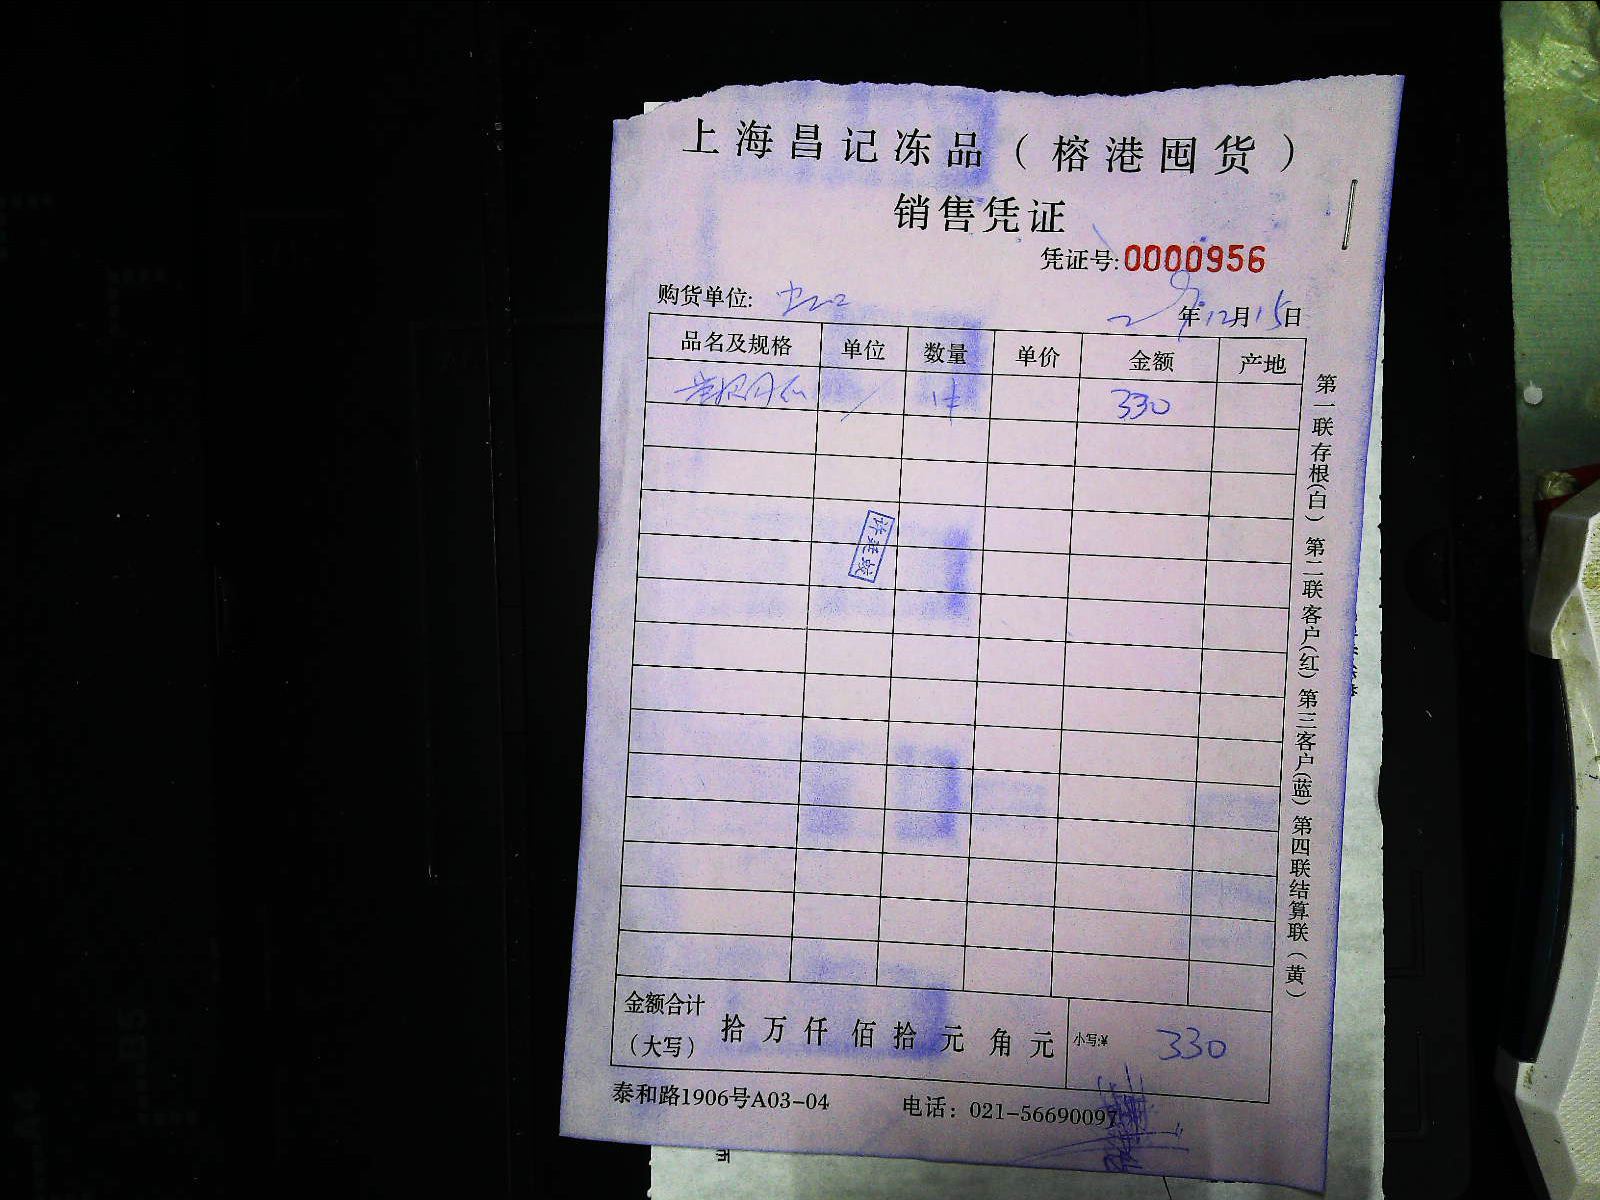 上海昌记冻品（榕港囤货）
销售凭证
凭证号:0000956
购货单位:
年12月15日
品名及规格 单位 数量 单价 金额 产地
1件 330
许建蛟
金额合计
（大写） 拾 万 仟 佰 拾 元 角 元 小写:¥ 330
泰和路1906号A03-04 电话：021-56690097
第一联存根(白) 第二联客户(红) 第三客户(蓝) 第四联结算联(黄)